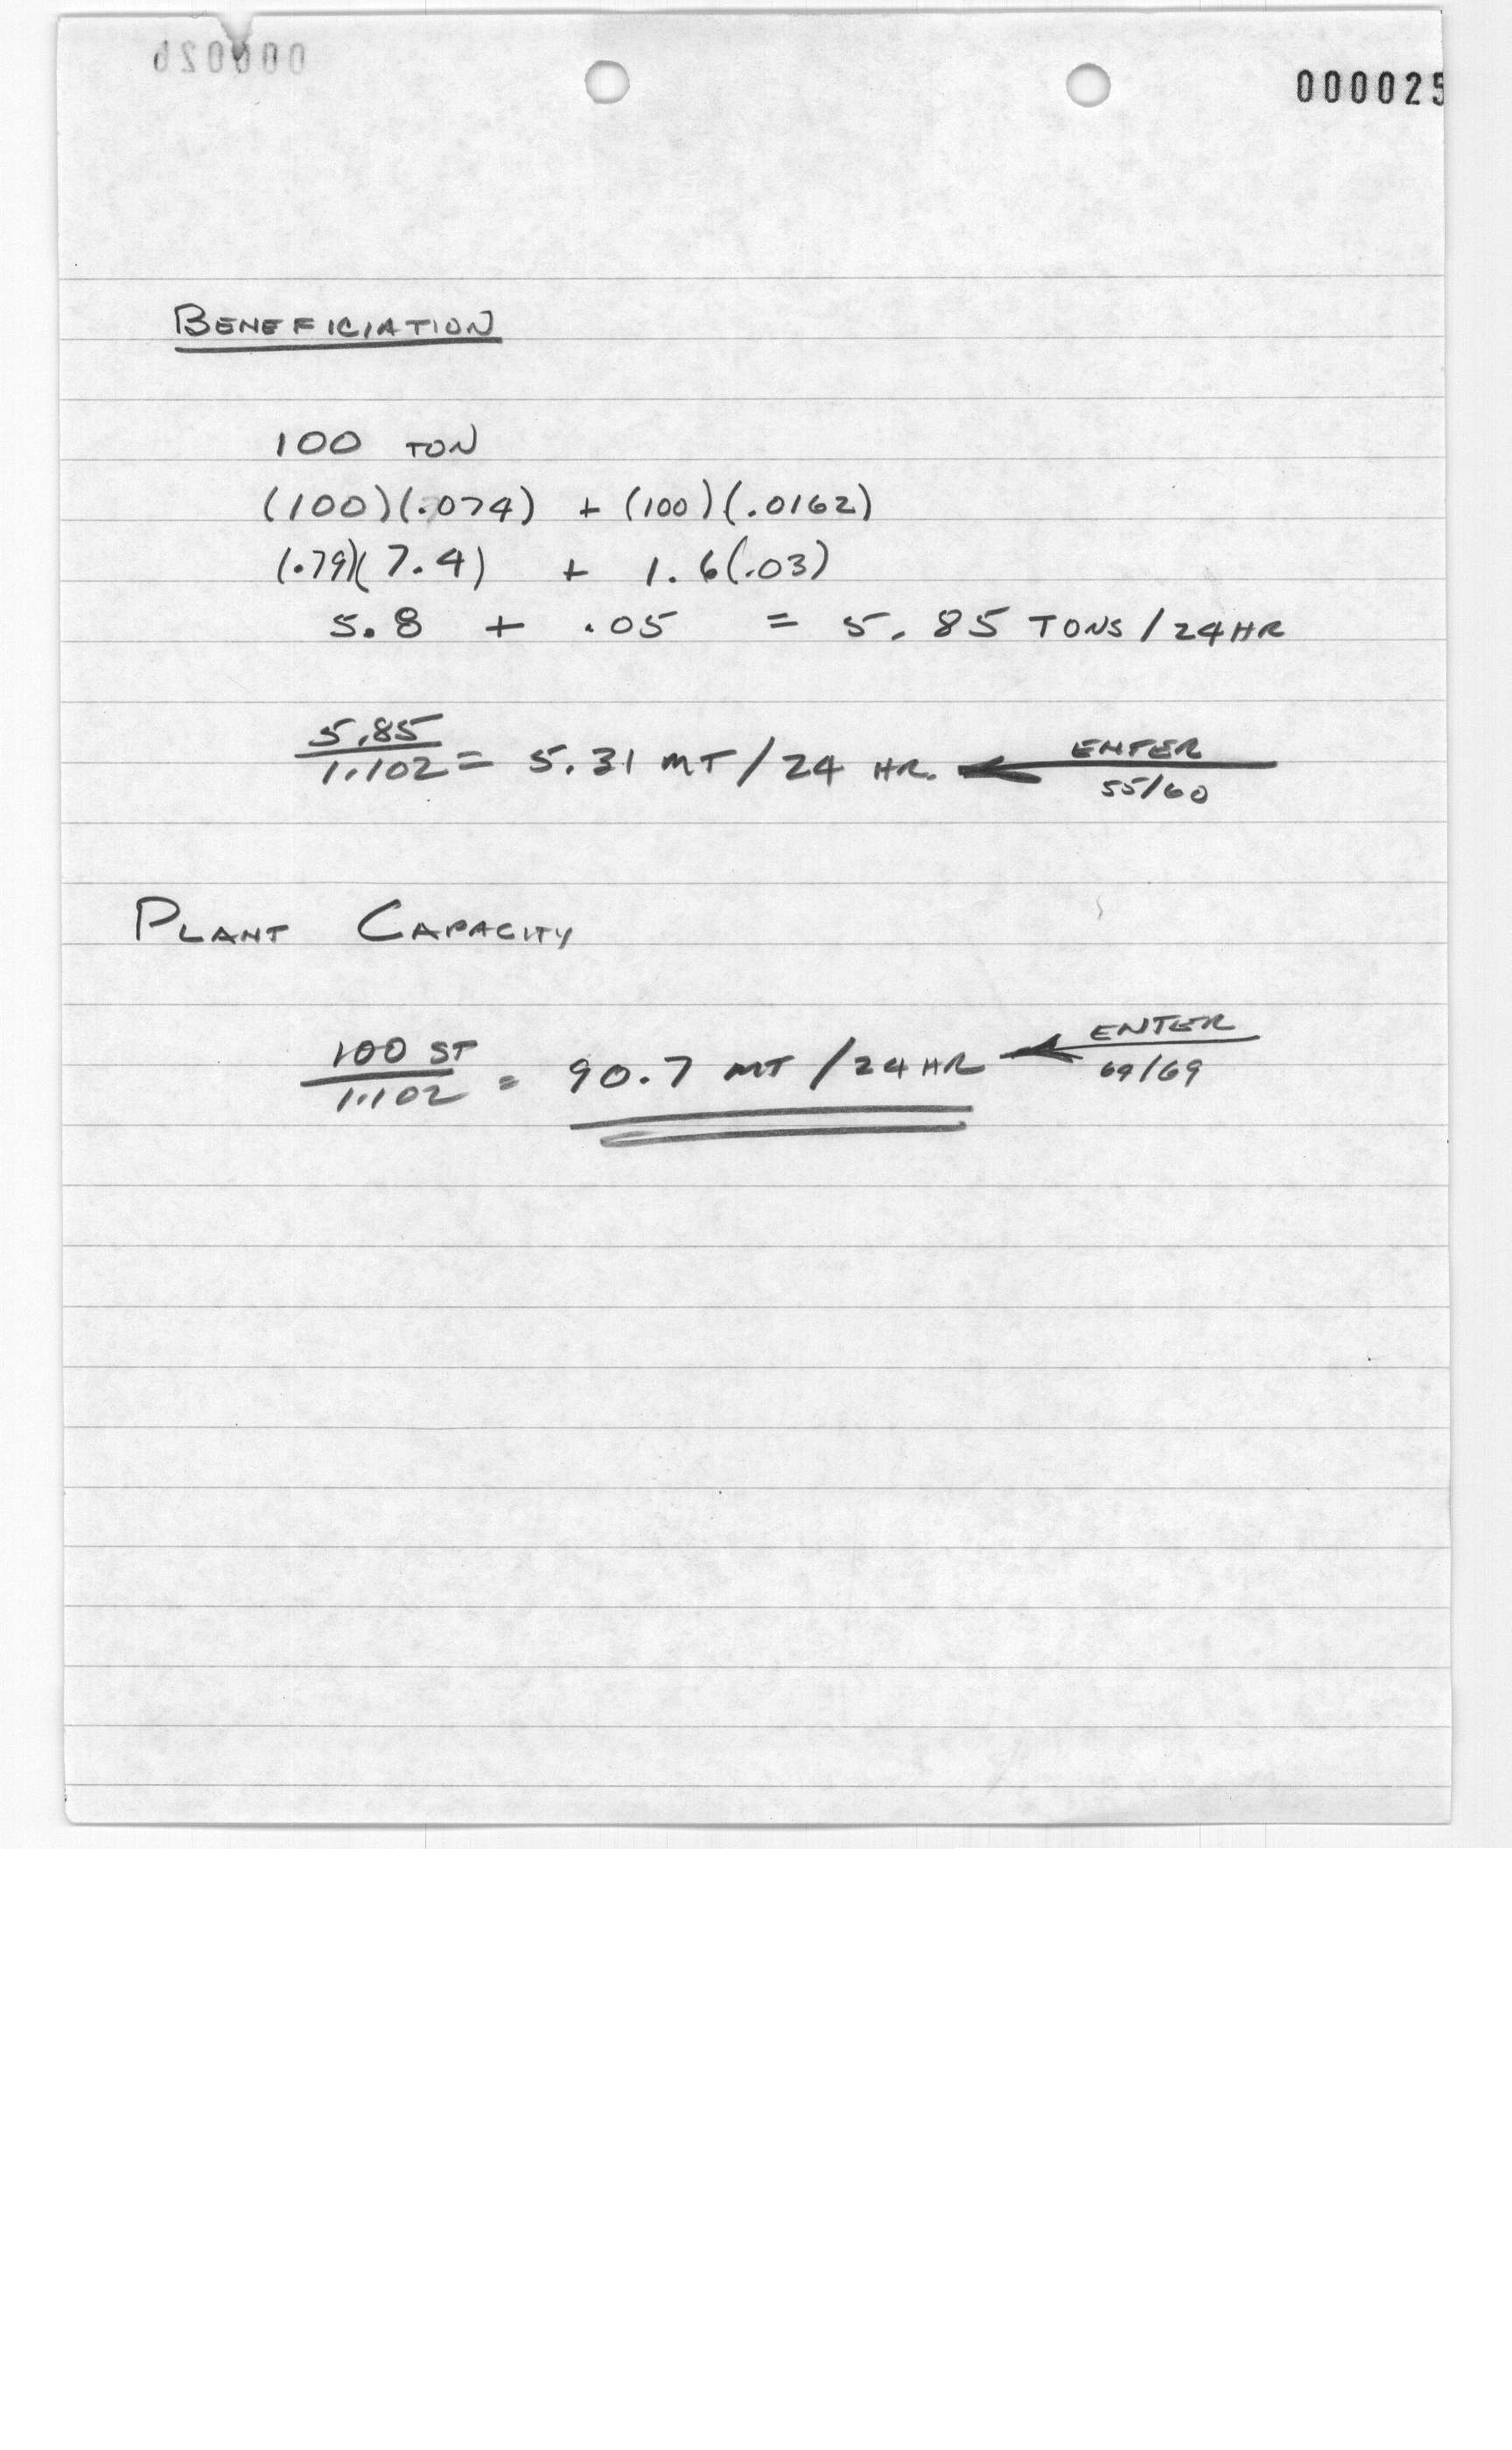 000026
000025
BENEFICIATION
100 TON
(100)(.074) + (100)(.0162)
(.79)(7.4) + 1.6(.03)
5.8 + .05 = 5.85 TONS/24HR
5.85
1.102 = 5.31 MT/24 HR. ENTER
55/60
PLANT CAPACITY
100 ST
1.102 = 90.7 MT/24HR ENTER
69/69